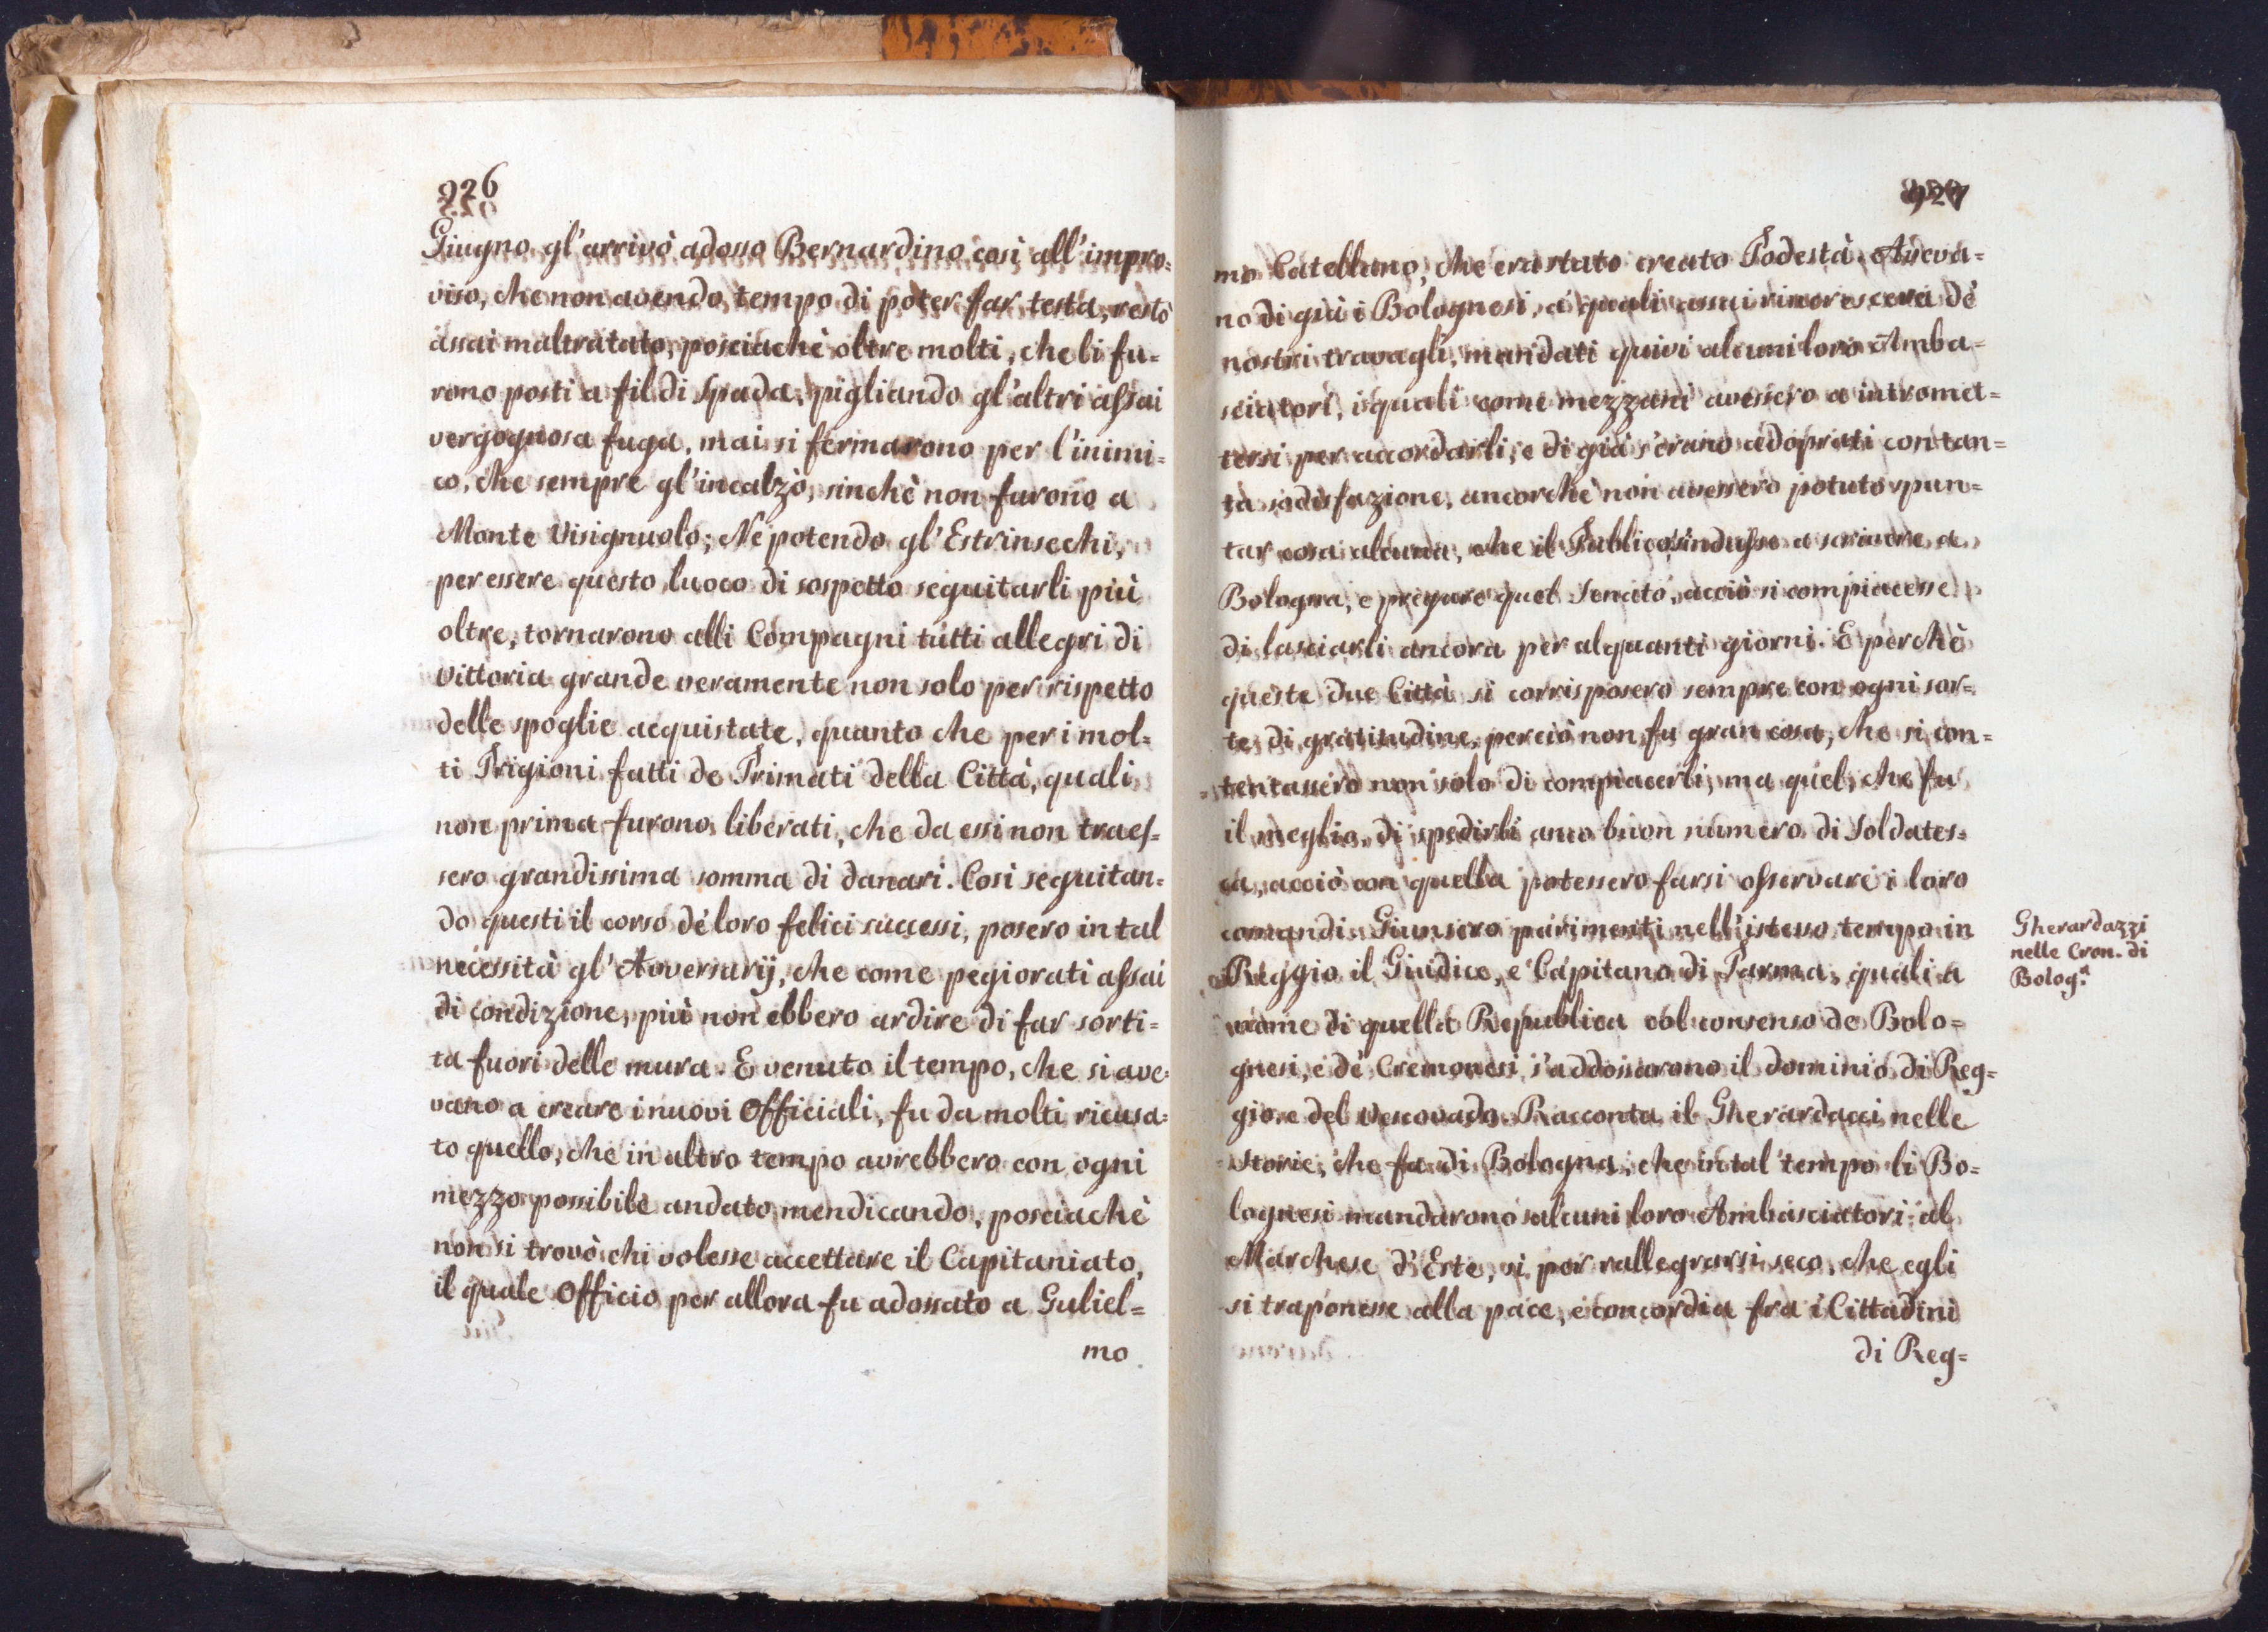 926
Giugno gl'arrivò adosso Bernardino così all'impro=
viso, che non avendo tempo di poter far testa, restò
assai maltratato, posciachè oltre molti, che li fu=
rono posti a fil di spada, pigliando gl'altri assai
vergognosa fuga, mai si fermarono per l'inimi=
co, che sempre gl'incalzò, sinchè non furono a
Monte Visignuolo; Nè potendo gl'Estrinsechi,
per essere questo luoco di sospetto seguitarli più
oltre, tornarono alli Compagni tutti allegri di
Vittoria grande veramente non solo per rispetto
delle spoglie acquistate, quanto che per i mol=
ti Prigioni fatti de Primati della Città, quali
non prima furono liberati, che da essi non traes=
sero grandissima somma di danari. Così seguitan=
do questi il corso de' loro felici successi, posero in tal
necessità gl'Avversarij, che come pegiorati assai
di condizione, più non ebbero ardire di far sorti=
ta fuori delle mura. E venuto il tempo, che si ave=
vano a creare i nuovi Officiali, fu da molti ricusa=
to quello, che in altro tempo avrebbero con ogni
mezzo possibile andato mendicando, posciachè
non si trovò chi volesse accettare il Capitaniato,
il quale Officio per allora fu adossato a Guliel=
mo
927
mo Catellano, che era stato creato Podestà. Aveva=
no di già i Bolognesi, a' quali assai rincresceva de'
nostri travagli, mandati quivi alcuni loro Amba=
sciatori, i quali come mezzani avessero a intromet=
tersi per accordarli, e di già s'erano adoprati con tan=
ta sodisfazione, ancorchè non avessero potuto spun=
tar cosa alcuna, che il Publico s'indusse a scrivere a
Bologna, e pregare quel Senato, acciò si compiacesse
di lasciarli ancora per alquanti giorni. E perchè
queste due Città si corrisposero sempre con ogni sor=
te di gratitudine, perciò non fu gran cosa, che si con=
tentassero non solo di compiacerli, ma quel, che fu
il meglio, di spedirli anco buon numero di Soldates=
ca, acciò con quella potessero farsi osservare i loro
comandi. Giunsero parimenti nell'istesso tempo in
Reggio il Giudice, e Capitano di Parma, quali a
nome di quella Republica col consenso de Bolo=
gnesi, e de' Cremonesi s'addossarono il dominio di Reg=
gio, e del Vescovado. Racconta il Gherardacci nelle
storie, che fa di Bologna, che in tal tempo li Bo=
lognesi mandarono alcuni loro Ambasciatori al
Marchese d'Este, si per rallegrarsi seco, che egli
si traponesse alla pace, e concordia fra i Cittadini
di Reg=
Gherardazzi
nelle Cron. di
Bolog.ª